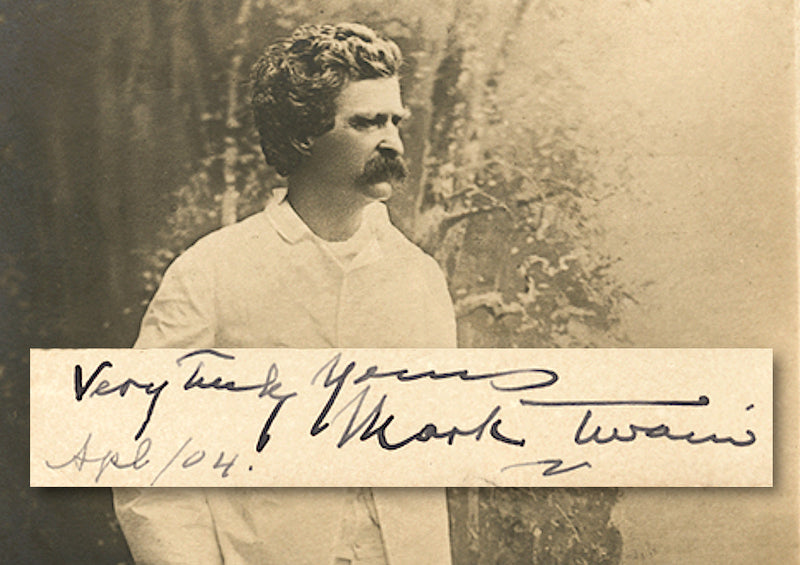 Very Truly Yours
Mark Twain
Apl /04.